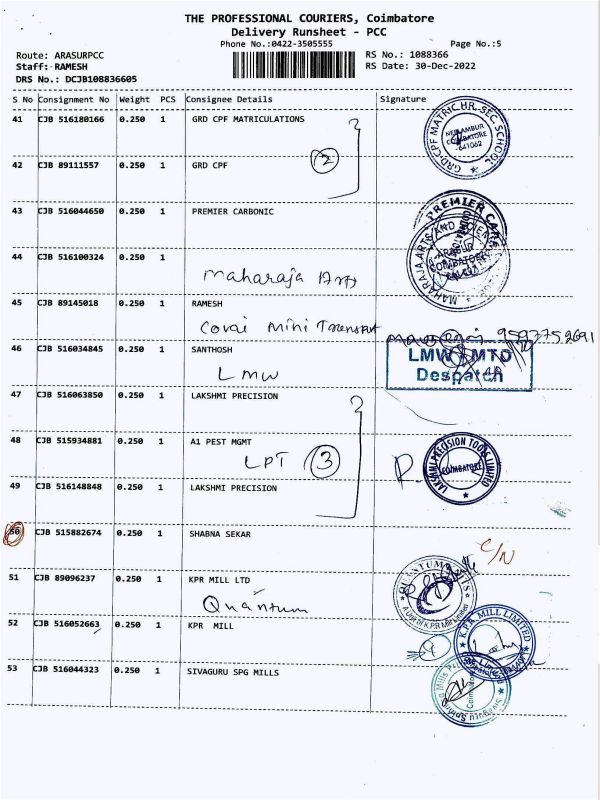 THE PROFESSIONAL COURIERS, Coimbatore
Delivery Runsheet - PCC
Phone No.:0422-3505555 Page No.:5
Route: ARASURPCC RS No.: 1088366
Staff: RAMESH RS Date: 30-Dec-2022
DRS No.: DCJB108836605
S No Consignment No Weight PCS Consignee Details Signature
41 CJB 516180166 0.250 1 GRD CPF MATRICULATIONS
GRD-CPF MATRIC.HR.SEC.SCHOOL
COIMBATORE
641062
2
42 CJB 89111557 0.250 1 GRD CPF
43 CJB 516044650 0.250 1 PREMIER CARBONIC
PREMIER
44 CJB 516100324 0.250 1
MAHARAJA ARTS AND SCIENCE
ARASUR
COIMBATORE
Maharaja Arts
45 CJB 89145018 0.250 1 RAMESH
Covai Mini Transport
46 CJB 516034845 0.250 1 SANTHOSH
LMW MTD
Despatch
LMW
47 CJB 516063850 0.250 1 LAKSHMI PRECISION
48 CJB 515934881 0.250 1 A1 PEST MGMT
LPT 3
LAKSHMI PRECISION TOOLS LIMITED
COIMBATORE
49 CJB 516148848 0.250 1 LAKSHMI PRECISION
50 CJB 515882674 0.250 1 SHABNA SEKAR
C/N
51 CJB 89096237 0.250 1 KPR MILL LTD
Quantum
52 CJB 516052663 0.250 1 KPR MILL
K.P.R. MILL LIMITED
53 CJB 516044323 0.250 1 SIVAGURU SPG MILLS